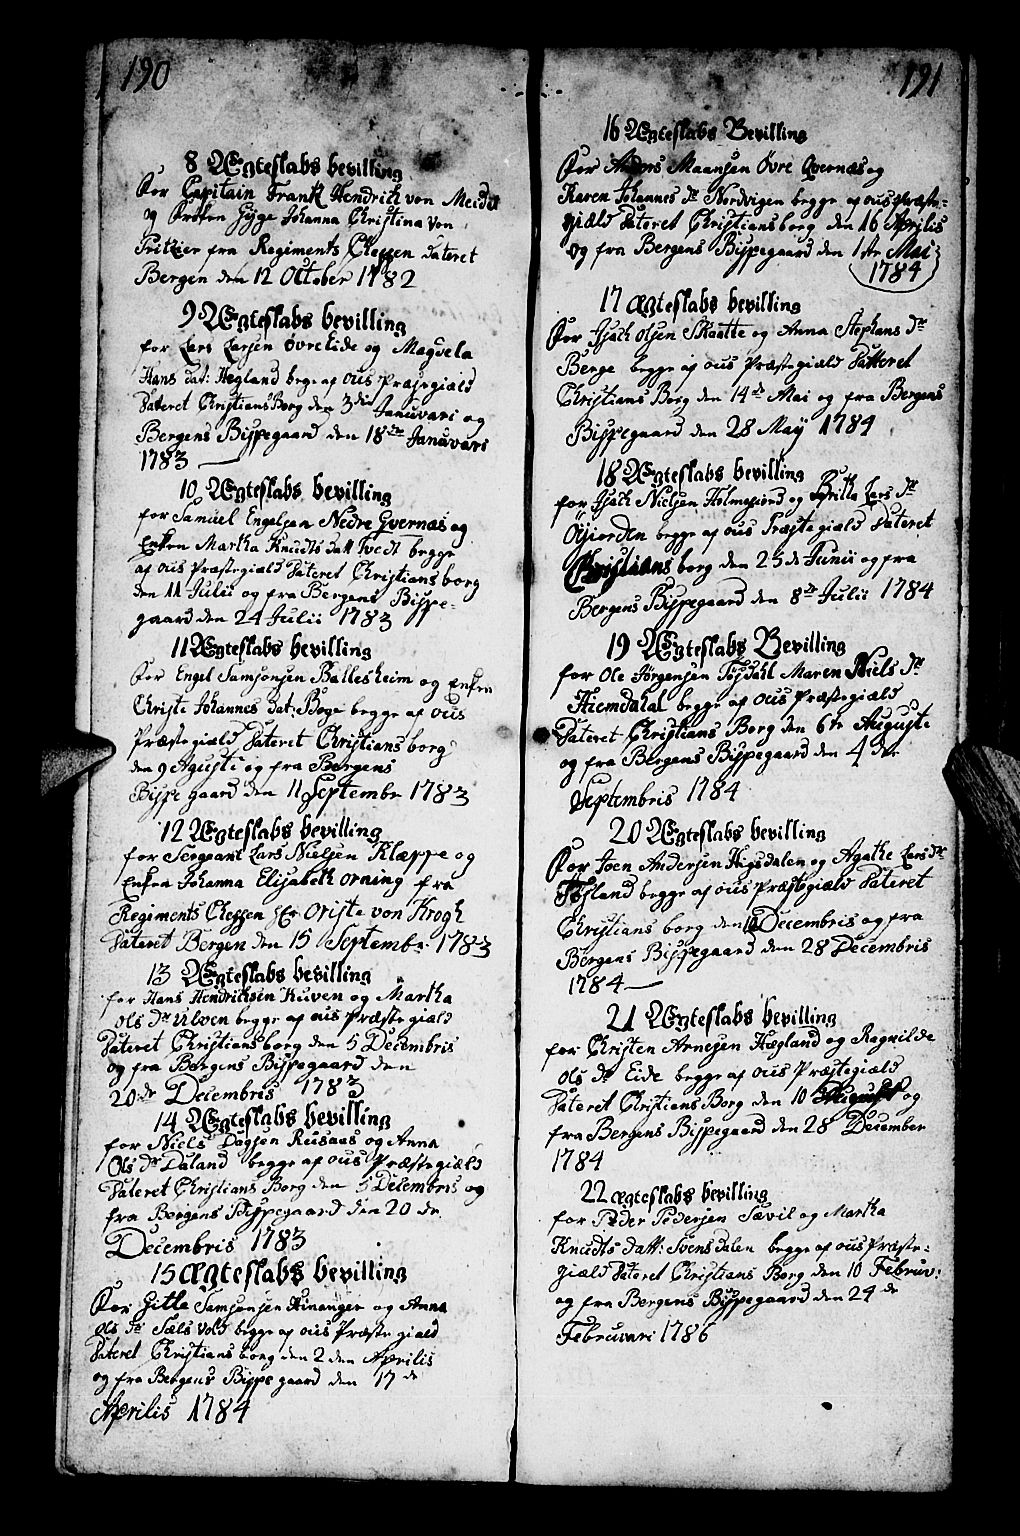 190
8 Ægteskabs bevilling
For Capitain Frank Hendrich von Meidel
og Frøken Gyge Johanna Christina von
Fritzier fra Regiments Cheffen dateret
Bergen den 12 October 1782
9 Ægteskabs bevilling
for Lars Larsen Øvre Eide og Magvela
Hans dat: Hegland begge af Ous Præstegiæld
dateret Christians Borg den 3die Januvari og
Bergens Bispegaard den 18de Januvari
1783
10 Ægteskabs bevilling
for Samuel Engelsen Nedre Qvernæs og
Enken Martha Knudts datt Tvedt begge
af Ous Præstegiæld dateret Christians borg
den 11 Julii og fra Bergens Bispe-
gaard den 24 Julii 1783
11 Ægteskabs bevilling
For Engel Samsonsen Ballesheim og Enken
Christi Johannes dat: Boge begge af Ous
Præstegiæld dateret Christians borg
den 9 Agusti og fra Bergens
Bispe gaard den 11 Septembr 1783
12 Ægteskabs bevilling
for Sergeant Lars Nielsen Klæppe og
Enken Johanna Elisabeth Orning fra
Regiments Cheffen Hr Oriste von Krogh
dateret Bergen den 15 Septembr: 1783
13 Ægteskabs bevilling
for Hans Hendrichsen Kuven og Martha
Ols Dr Ulven begge af Ous Præste giæld
dateret Christians borg den 5 Decembris
og fra Bergens Bispegaard den
20de Decembris 1783
14 Ægteskabs bevilling
for Niels Dagsen Reisaas og Anna
Ols Dr Daland begge af Ous Præstegiæld
dateret Christians Borg den 5 Decembris og
fra Bergens Bispegaard den 20 de
Decembris 1783
15 Ægteskabs bevilling
For Gitle Samsonsen Hinanger og Anna
Ols Dr Sæls Vold begge af Ous Præste giæld
dateret Christians borg den 2 den Aprilis
og fra Bergens Bispe gaard den 17 de
Aprilis 1784
191
16 Ægteskabs Bevilling
For Anders Maansen Øvre Qvernæs og
Karen Johannes Dr Nordvigen begge af ous Præste-
giæld dateret Christiansborg den 16 Aprilis
og fra Bergens Bispegaard den 1ste Mai
1784
17 ægteskabs bevilling
For Isach Olsen Skaatte og Anna Stephans Dr
Berge begge af ous Præstegiæld datteret
Christians Borg den 14de Mai og fra Bergens
Bispegaard den 28 May 1784
18 Ægteskabs bevilling
for Isach Nielsen Holmefiord og Britta Lars Dr
Øfiorden begge af ous Præstegiæld dateret
Christians borg den 25 de Junii og fra
Bergens Bispegaard den 8de Julii 1784
19 Ægteskabs Bevilling
for Ole Jørgensen Tøsdahl Maren Niels Dr
Hiemdahl begge af ous Præstegiæld
dateret Christians Borg den 6te Auguste
og fra Bergens Bispegaard den 4 de
Septembris 1784
20 Ægteskabs bevilling
For Joen Andersen Hegsdalen og Agathe Lars Dr
Tøsland begge af ous Præstegiæld dateret
Christians borg den 10 Decembris og fra
Bergens Bispegaard den 28 Decembris
1784
21 Ægteskabs bevilling
for Christen Arnesen Hægland og Ragnilde
Ols Dr Eide begge af ous Præstegiæld
dateret Christians Borg den 10 August og
fra Bergens Bispegaard den 28 December
1784
22 ægteskabs bevilling
for Peder Pedersen Sævil og Martha
Knudts datt: Svensdalen begge af ous Præste-
giæld dateret Christians Borg den 10 Februv:
og fra Bergens Bispegaard den 24 de
Februvari 1786